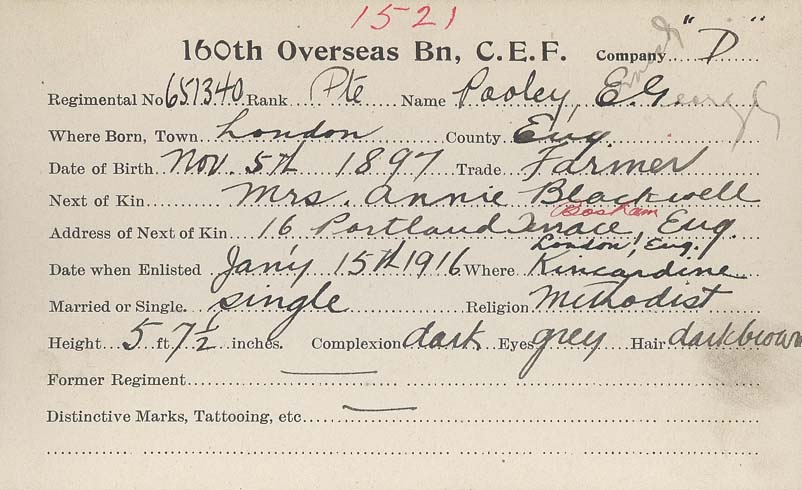 1521
160th Overseas Bn, C.E.F. Company "D"
Regimental No 651340 Rank Pte Name Pooley, E.G. Ernest George
Where Born, Town London County Eng.
Date of Birth Nov. 5th 1897 Trade Farmer
Next of Kin Mrs. Annie Blackwell
Bosham
Address of Next of Kin 16 Portland Terrace, Eng.
London, Eng.
Date when Enlisted Jan'y 15th 1916 Where Kincardine
Married or Single. single Religion Methodist
Height 5 ft 7½ inches. Complexion dark Eyes grey Hair dark brown
Former Regiment —
Distinctive Marks, Tattooing, etc —